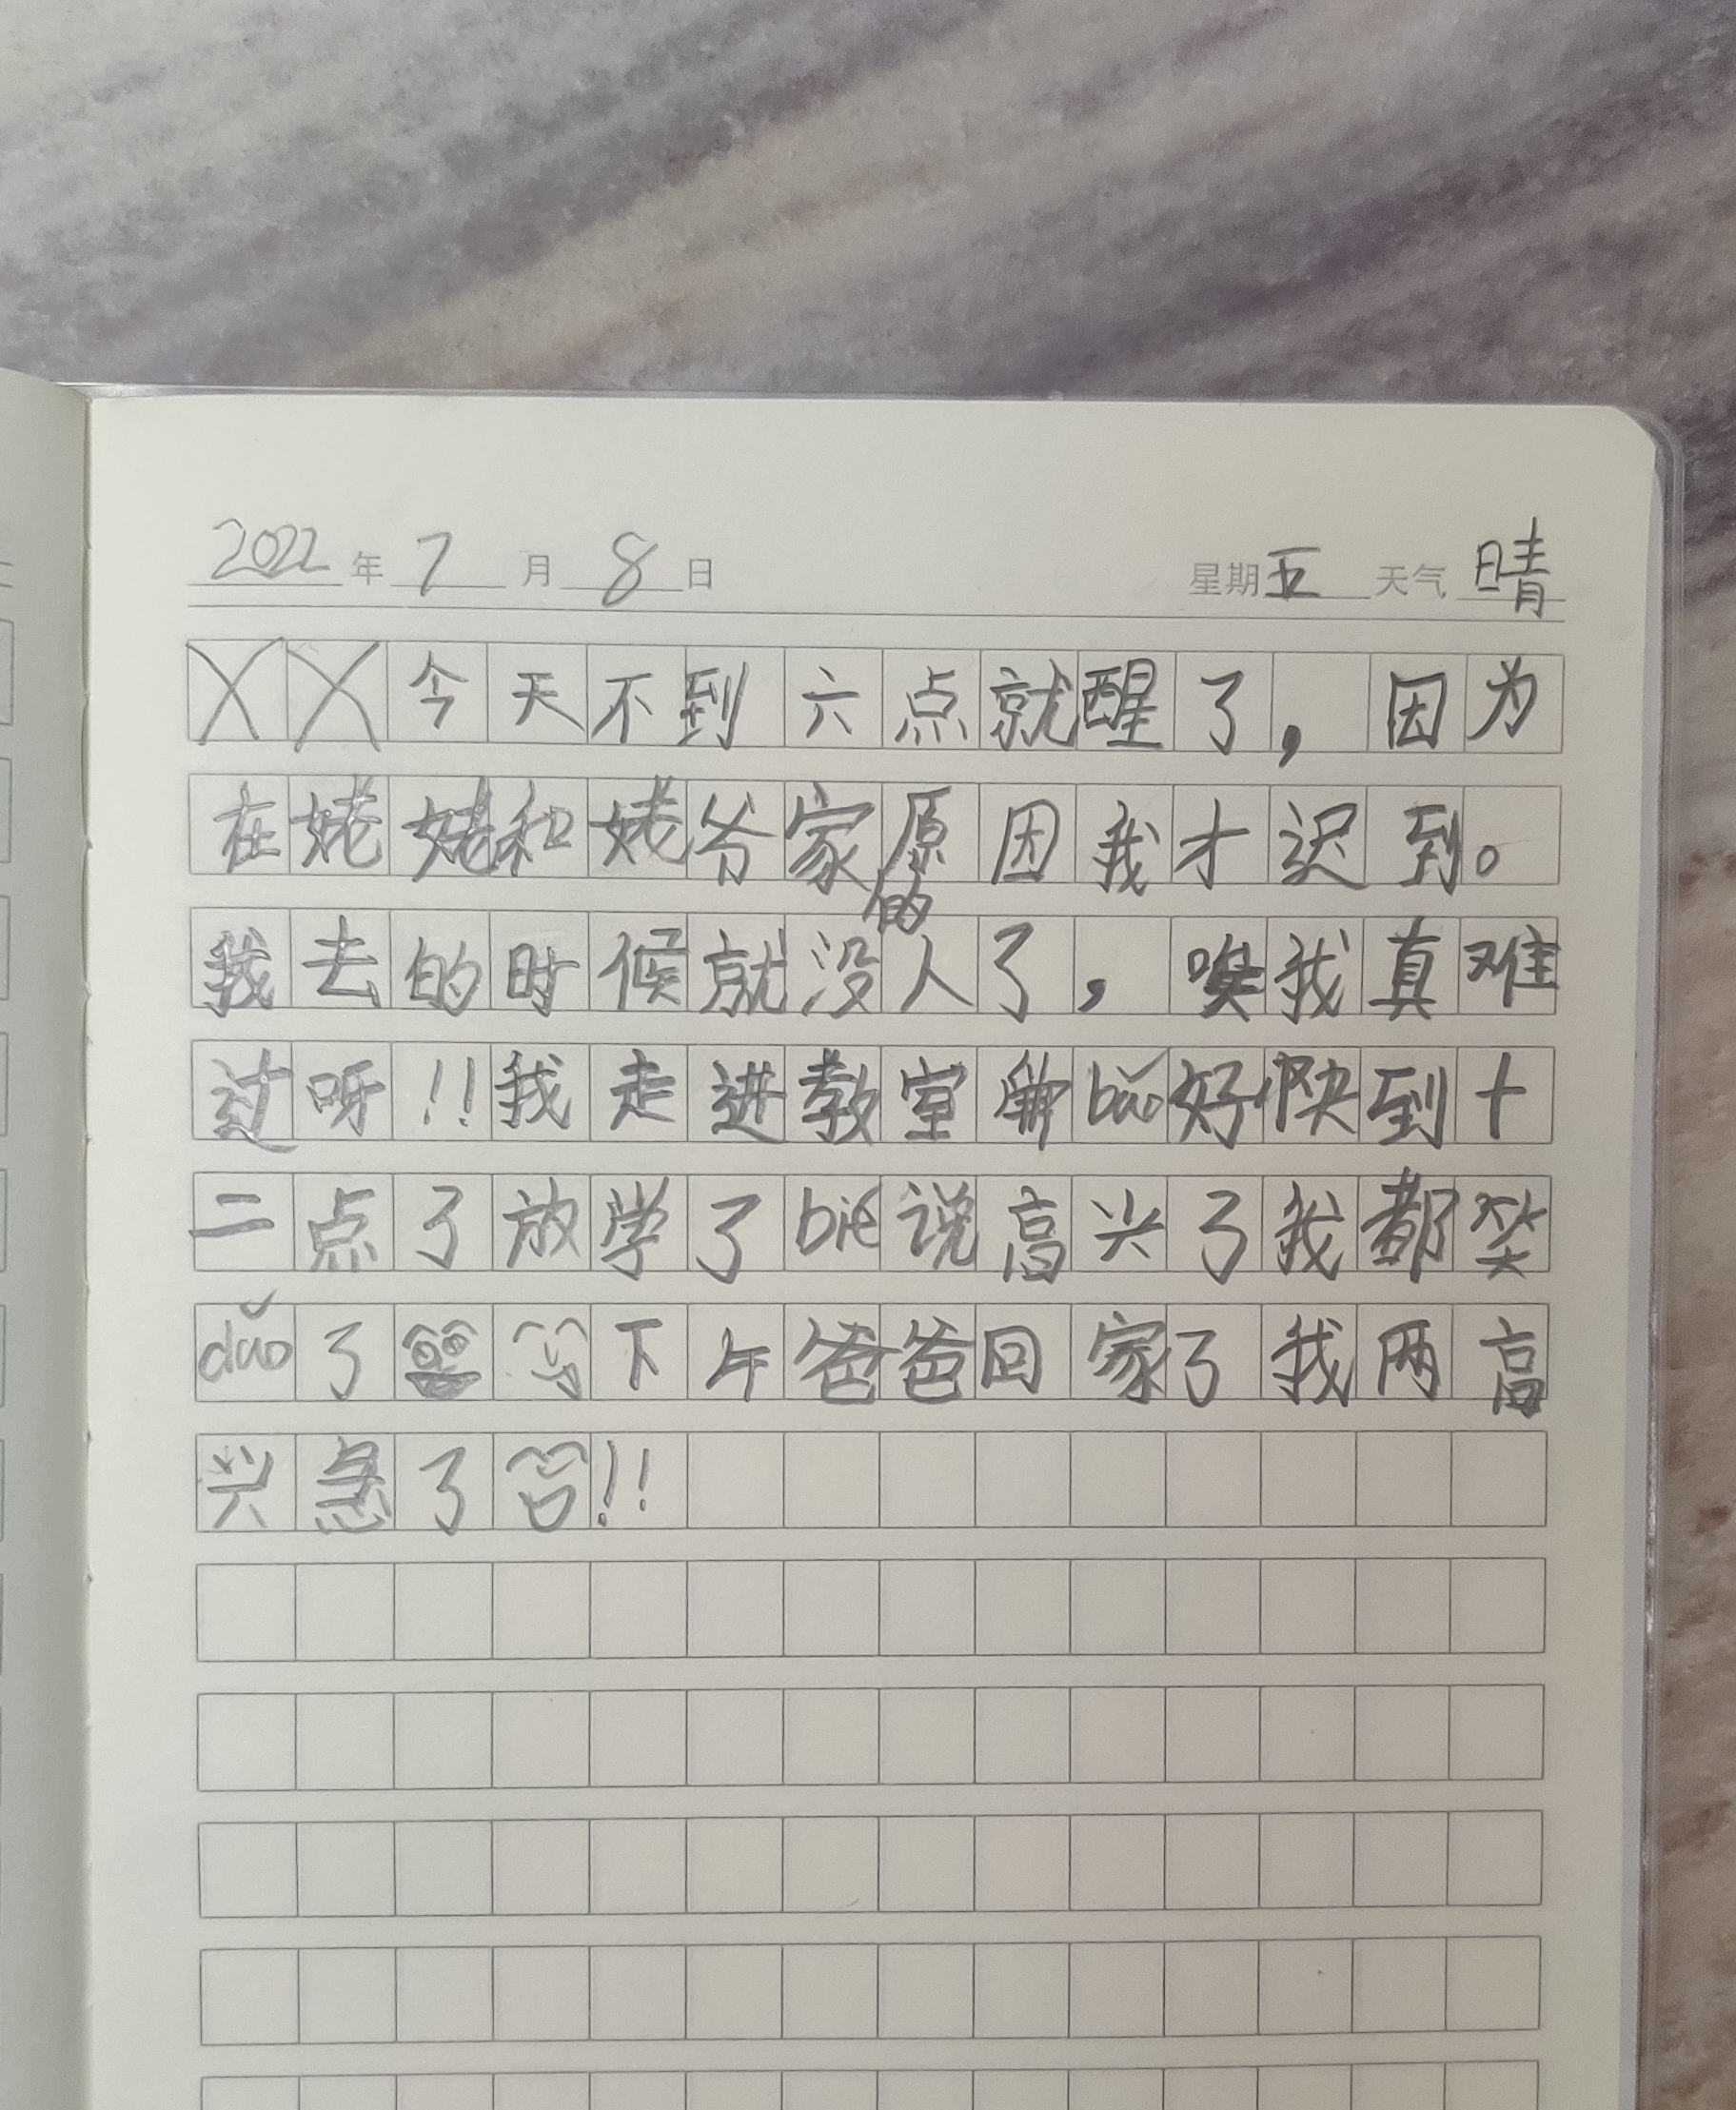 2022年7月8日 星期五 天气晴
XX今天不到六点就醒了，因为
在姥姥和姥爷家的原因我才迟到。
我去的时候就没人了，唉我真难
过呀!!我走进教室 bǎo好快到十
二点了放学了bié说高兴了我都笑
dǎo了下午爸爸回家了我两高
兴急了!!